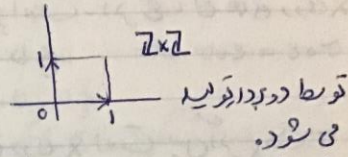 ℤ×ℤ
۱
۰ ۱
توسط دو بردار تولید
می شود.